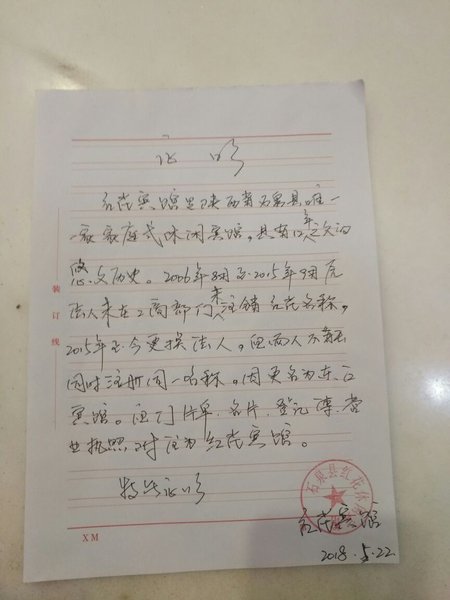 证明
红花宾馆是陕西省石泉县唯一
一家家庭式休闲宾馆，具有12年之久的
悠久历史。2006年8月至2015年9月原
法人未在工商部门未注销红花名称，
2015年至今更换法人，但两人不能
同时注册同一名称。因更名为
宾馆。但门牌、名片、登记薄、营
业执照对注为红花宾馆。
特此证明
石泉县红花休
红花宾馆
2018.5.22
装订线
XM